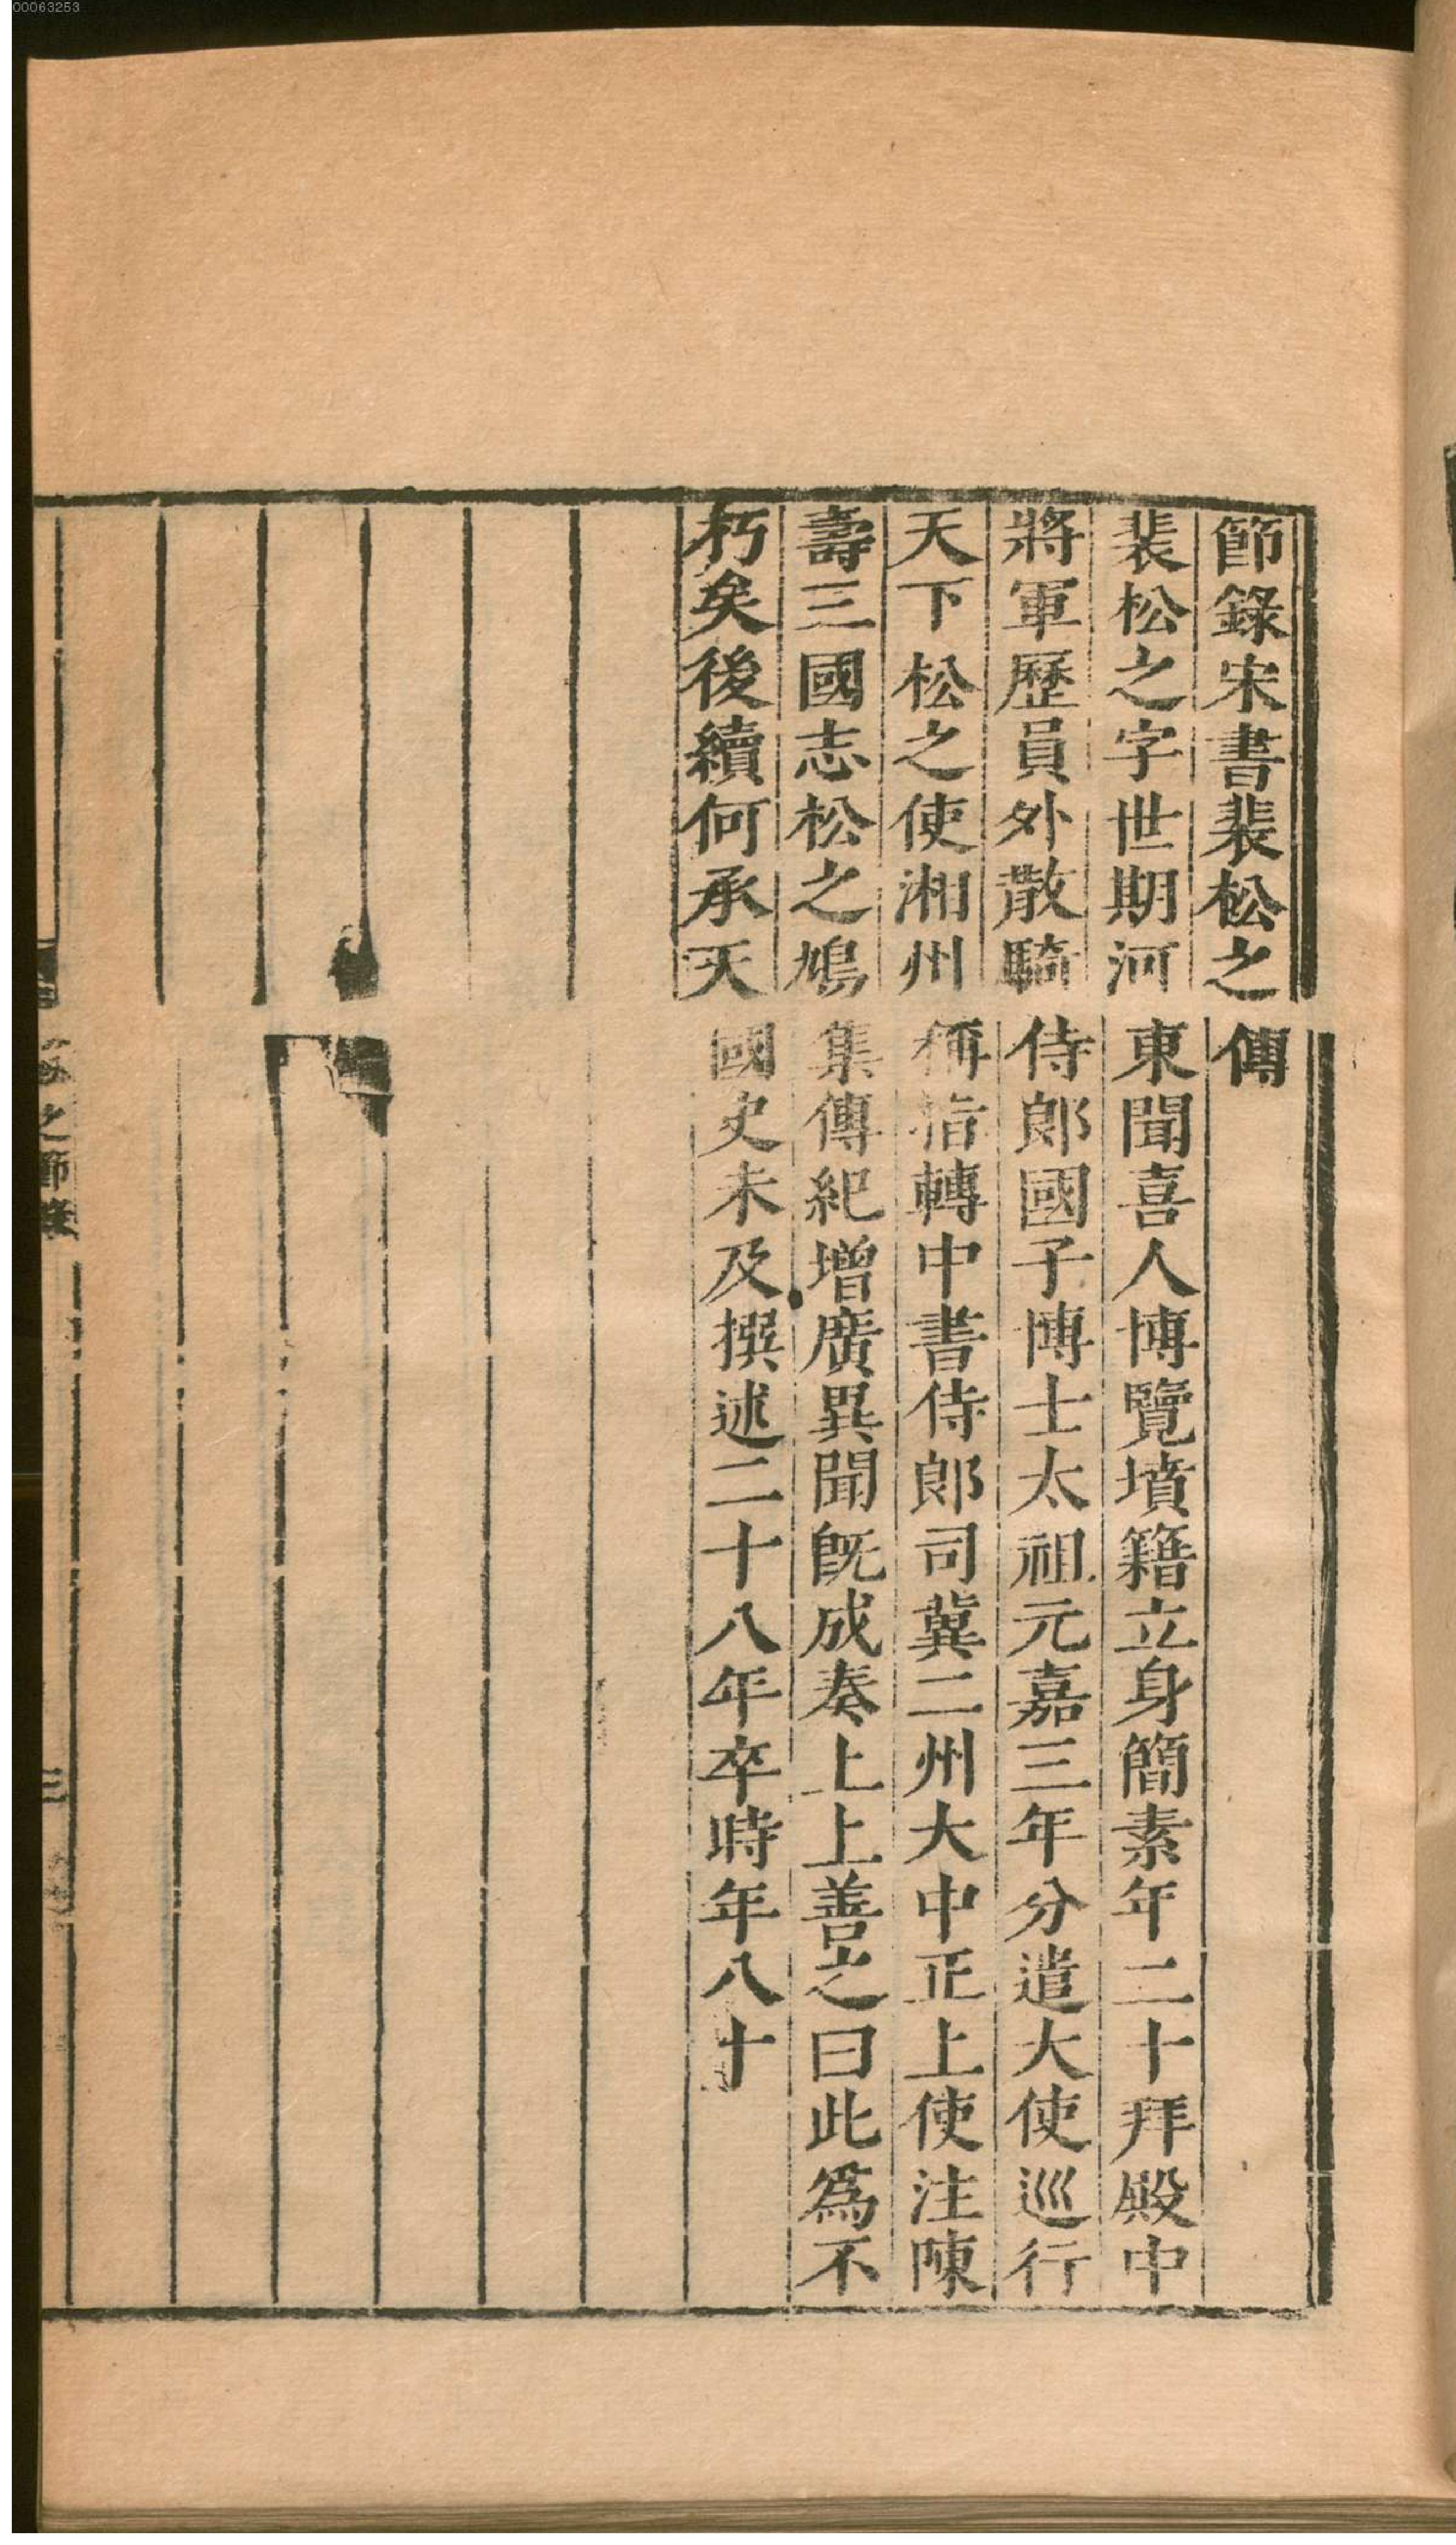 00063253
節錄宋書裴松之傳
裴松之字世期河東聞喜人博覽墳籍立身簡素年二十拜殿中
將軍歷員外散騎侍郎國子博士太祖元嘉三年分遣大使巡行
天下松之使湘州稱指轉中書侍郎司冀二州大中正上使注陳
壽三國志松之鳩集傳紀增廣異聞旣成奏上上善之曰此爲不
朽矣後續何承天國史未及撰述二十八年卒時年八十
之節錄
三